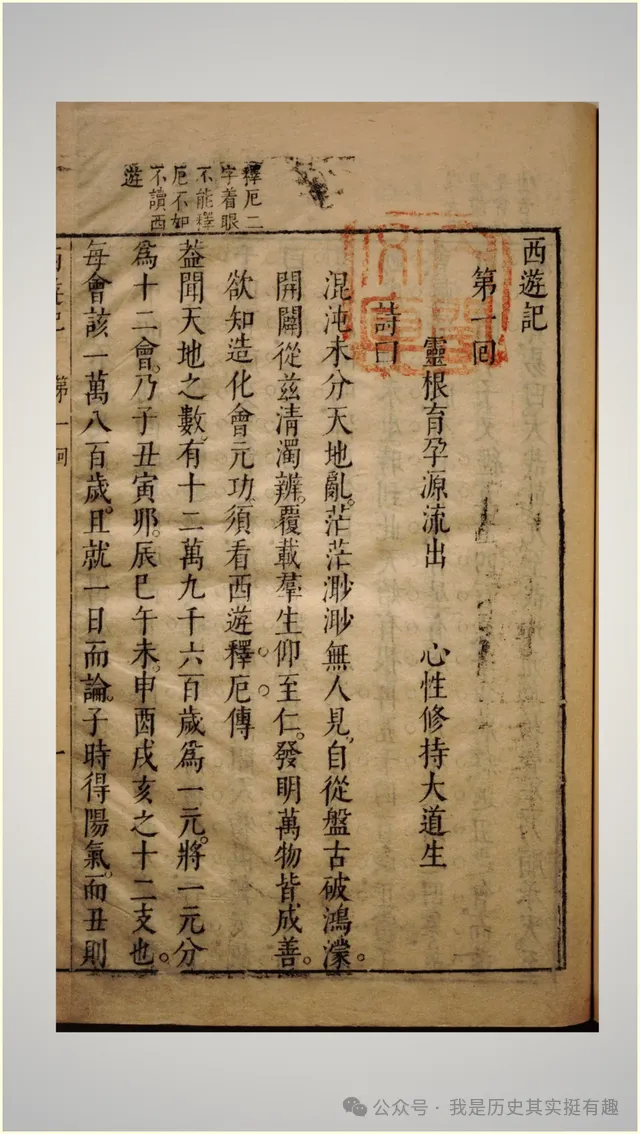 西遊記
第一回
靈根育孕源流出　心性修持大道生
詩曰
混沌未分天地亂。茫茫渺渺無人見。自從盤古破鴻濛。
開闢從兹清濁辨。覆載羣生仰至仁。發明萬物皆成善。
欲知造化會元功。須看西遊釋厄傳
葢聞天地之數。有十二萬九千六百歲爲一元。將一元分
爲十二會。乃子丑寅卯。辰巳午未。申酉戌亥之十二支也。
每會該一萬八百歲。且就一日而論。子時得陽氣。而丑則
釋厄二
字着眼
不能釋
厄不如
不讀西
遊
西遊記　第一回　一
公众号 · 我是历史其实挺有趣